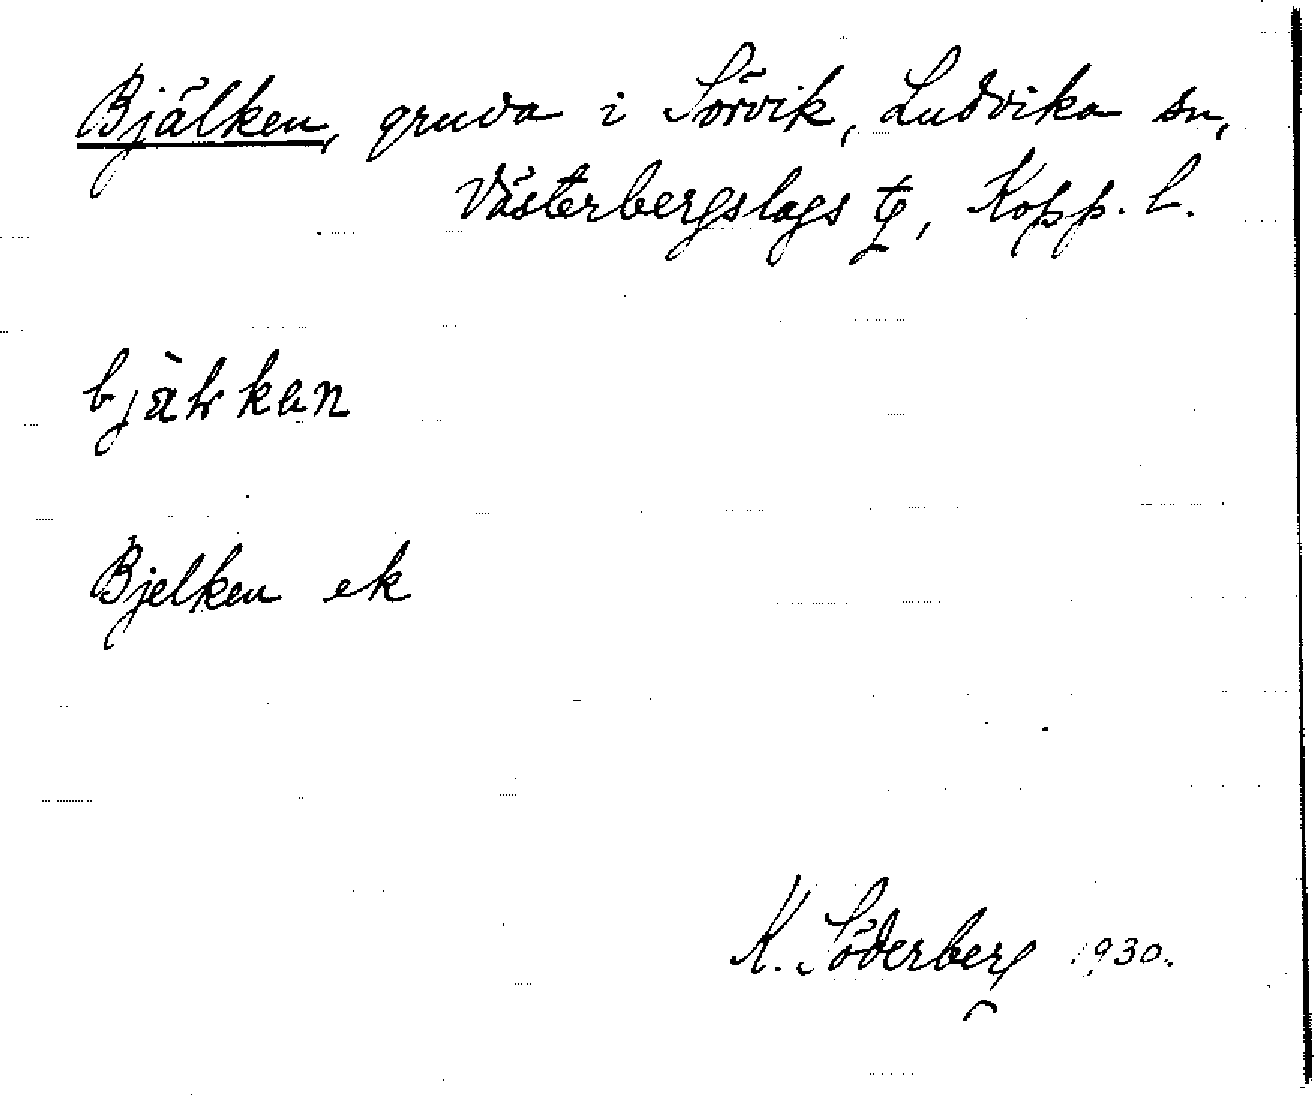 Bjälken, gruva i Sörvik, Ludvika sn,
Västerbergslags tg, Kopp. l.
Bjelken ek
K. Söderberg 1930.